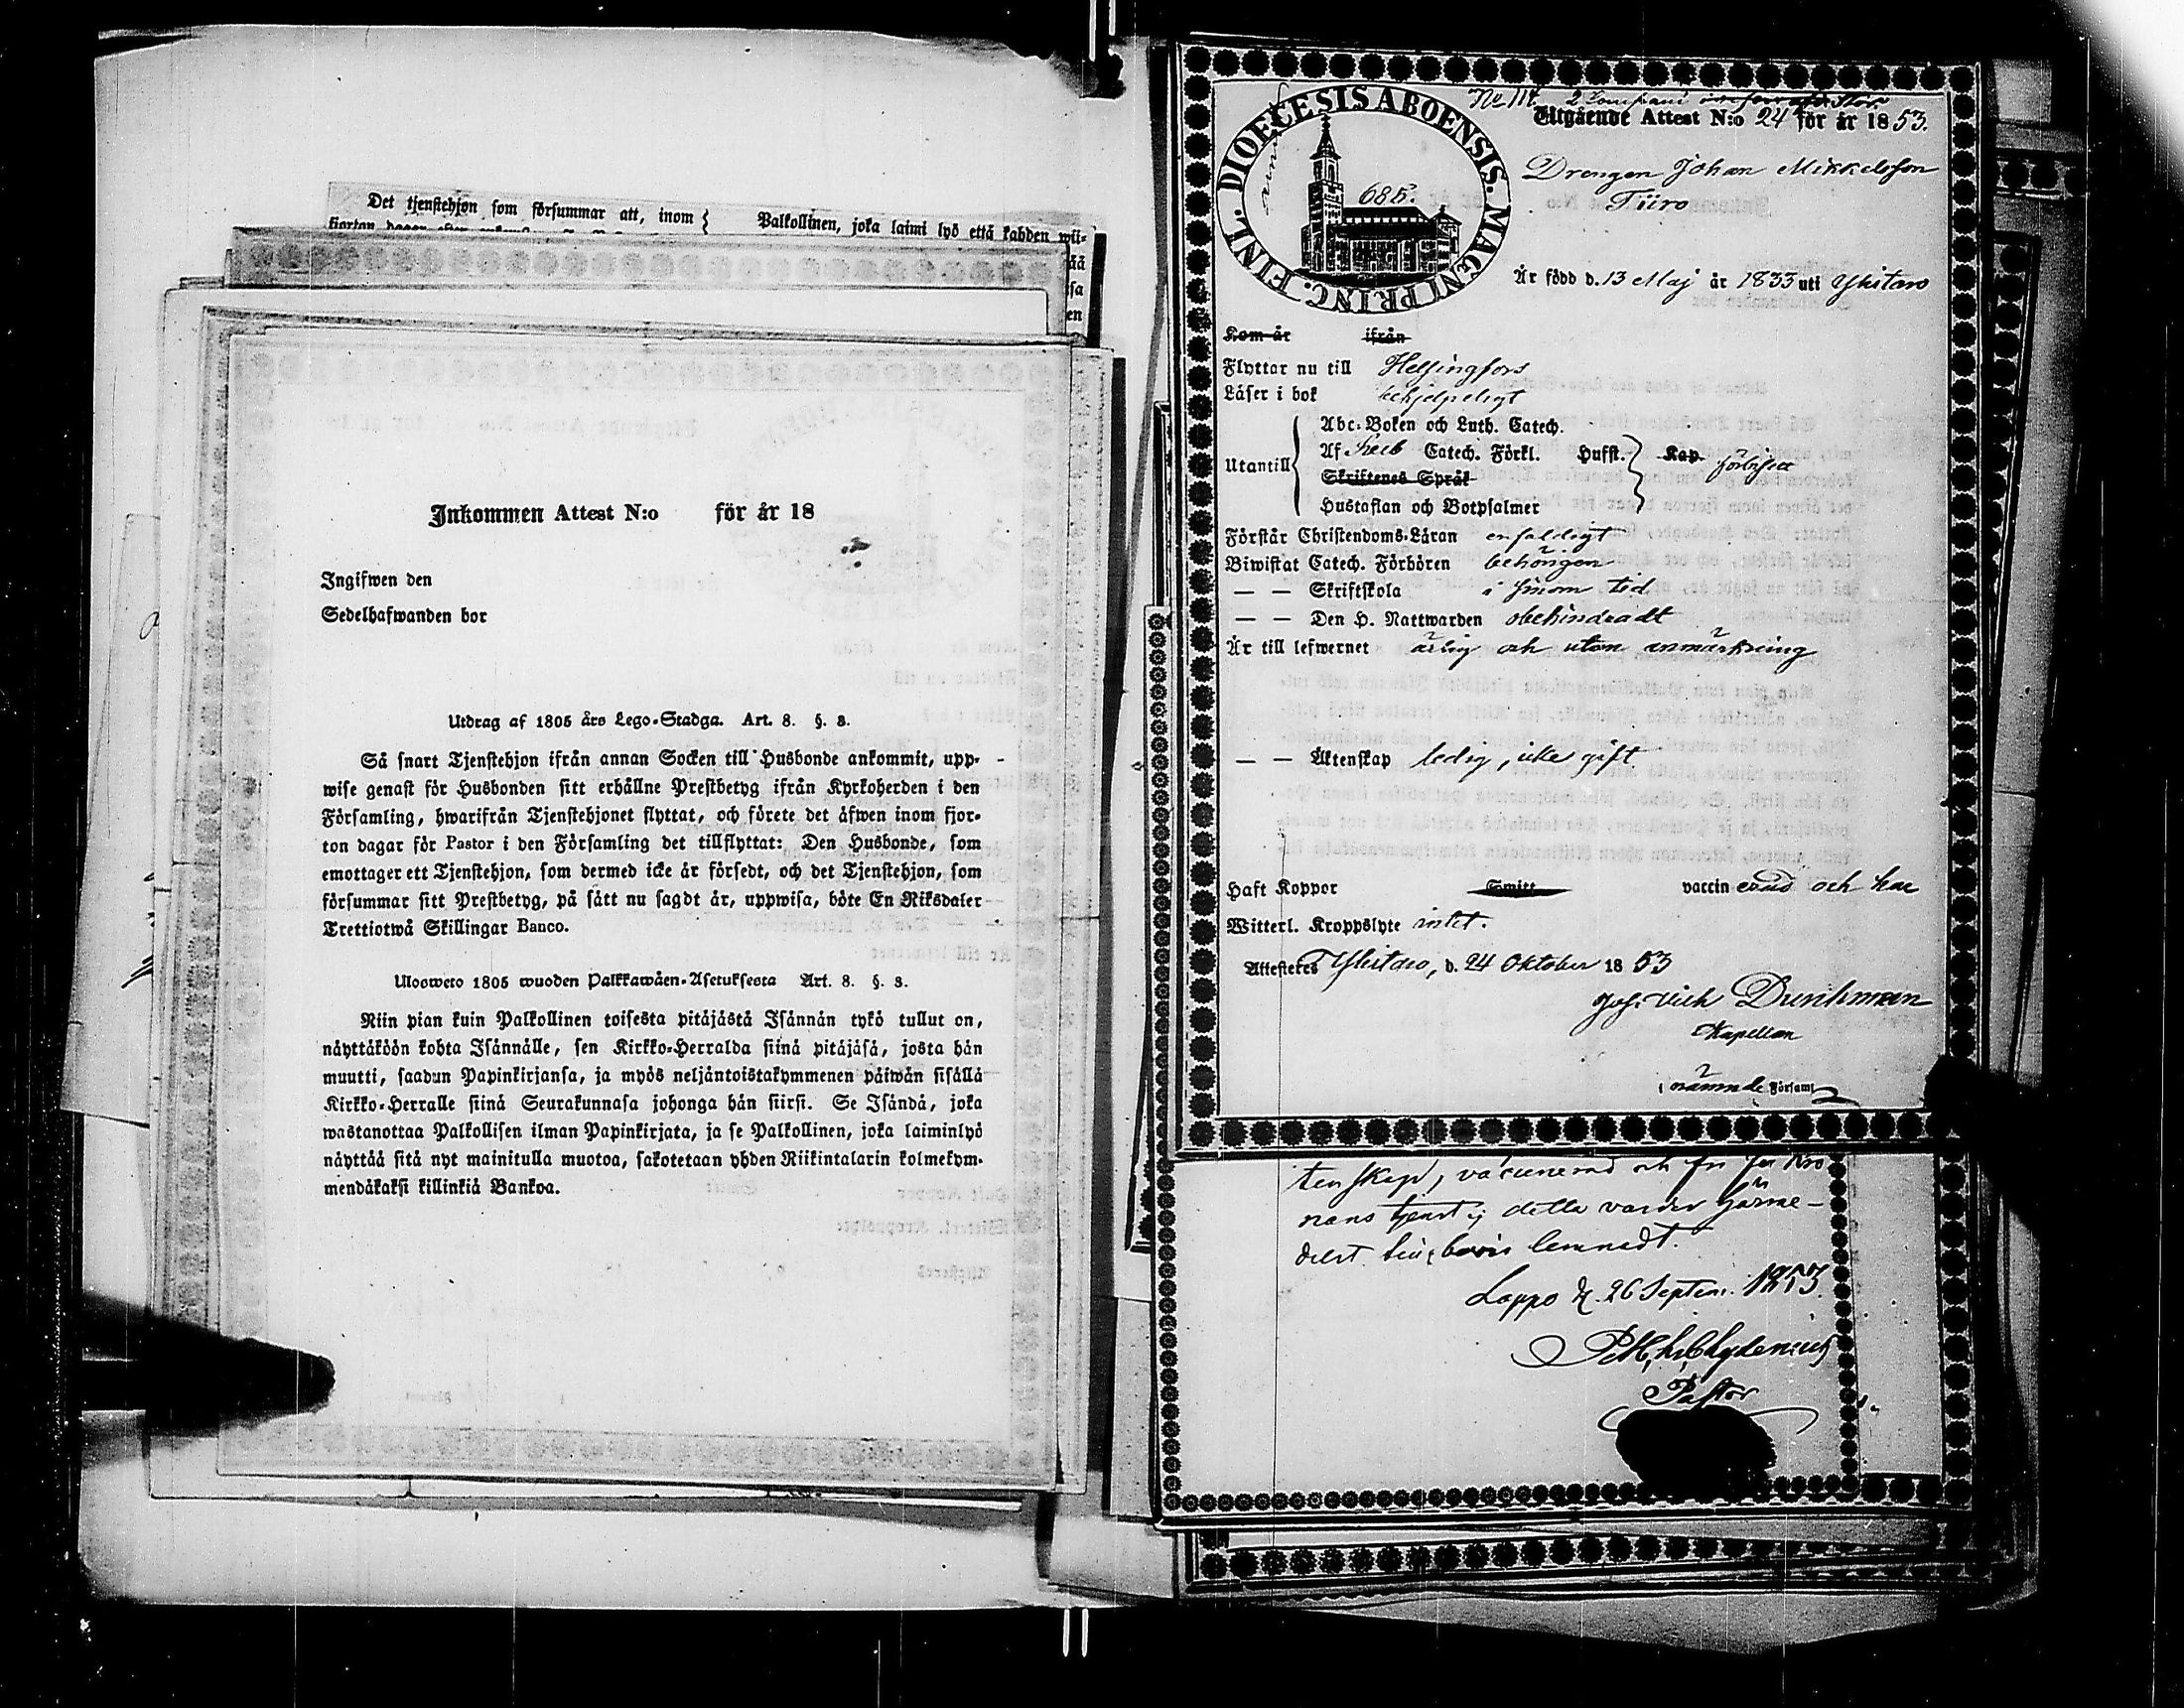 Det tjenstehjon som försummar att, inom
Palkollinen, joka laimi lyö että kahden wii-
Inkommen Attest N:o för år 18
Ingifwen den
Sedelhafwanden bor
Utdrag af 1805 års Lego-Stadga. Art. 8. §. 8.
Så snart Tjenstehjon ifrån annan Socken till Husbonde ankommit, upp-
wise genast för Husbonden sitt erhållne Prestbetyg ifrån Kyrkoherden i den
Församling, hwarifrån Tjenstehjonet flyttat, och förete det äfwen inom fjor-
ton dagar för Pastor i den Församling det tillflyttat: Den Husbonde, som
emottager ett Tjenstehjon, som dermed icke är försedt, och det Tjenstehjon, som
försummar sitt Prestbetyg, på sätt nu sagdt är, uppwisa, böte En Riksdaler
Trettiotwå Skillingar Banco.
Ulosweto 1805 wuoden Palkkawäen-Asetuksesta Art. 8. §. 8.
Niin pian kuin Palkollinen toisesta pitäjästä Isännän tykö tullut on,
näyttäköön kohta Isännälle, sen Kirkko-Herralda siinä pitäjäsä, josta hän
muutti, saadun Papinkirjansa, ja myös neljäntoistakymmenen päiwän sisällä
Kirkko-Herralle siinä Seurakunnasa johonga hän siirsi. Se Isändä, joka
wastanottaa Palkollisen ilman Papinkirjata, ja se Palkollinen, joka laiminlyö
näyttää sitä nyt mainitulla muotoa, sakotetaan yhden Riikintalarin kolmekym-
mendäkaksi killinkiä Bankoa.
No 114. 2 Compani
DIOECESIS ABOENSIS. MAGNI PRINC. FINL.
685.
Utgående Attest N:o 24 för år 1853.
Drengen Johan Mikkelsson
Tiiro
Är född d. 13 Maj år 1833 uti Ylistaro
Kom år ifrån
Flyttar nu till Helsingfors
Läser i bok behjelpeligt
Abc-Boken och Luth. Catech.
Utantill Af Catech. Förkl. Husst. Kap.
Skriftenes Språk
Hustaflan och Botpsalmer
Förstår Christendoms-Läran enfaldigt
Biwistat Catech. Förhören behörigen
— — Skriftskola i sinom tid
— — Den H. Nattwarden obehindradt
Är till lefwernet ärlig och utan anmärkning
— — Äktenskap ledig, icke gift.
Haft Koppor Smitt vaccin och har
Witterl. Kroppslyte intet.
Attesteres Ylistaro, d. 24 Oktober 1853
Dunkman
Kapellan
i nämnde Församl
tenskap, vaccinerad och fri för Kro
nans tjenst; detta varder härme-
delst bevis lemnadt.
Lappo d. 26 Septem. 1853.
Chydenius
Pastor